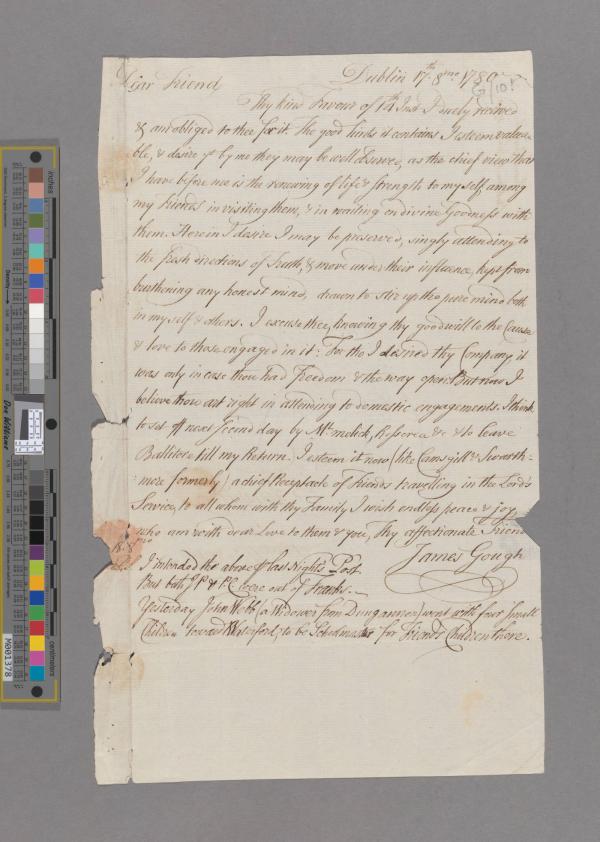 Dublin 17th 8mo 1780
G/101
Dear Friend
Thy kind Favour of 14th Inst I rec'd
& am obliged to thee for it. The good hints it contains I esteem valua
ble, & desire yt by me they may be well as the chief view that
I have before me is the renewing of life & strength to myself among
my friends in visiting them, & in waiting on divine Goodness with
them. Herein I desire I may be preserved, singly attending to
the fresh directions of Truth, & move under their influence, kept from
burthening any honest mind, drawn to stir up the pure mind both
in myself & others. I excuse thee, knowing thy good will to the Cause
& love to those engaged in it: For tho I desired thy Company it
was only in case thou had Freedom & the way open. But now I
believe thou art right in attending to domestic engagements. I think
to set off next second day by Mt. melick, Roscrea &c & to leave
Ballitore till my Return. I esteem it now (like Camsgill & Swarth-
more formerly) a chief Receptacle of Friends travelling in the Lord's
Service, to all whom with thy Family I wish endless peace & joy
who am with dear Love to them & you, Thy affectionate Friend
James Gough
I intended the above last Night's Post
But both J.P. & P.C. were out of Franks.
Yesterday John Webb (a Widower from Dungannon) went with four small
Children toward Waterford, to be Schoolmaster for Friends Children there.
inches
centimeters
Don Williams
Density
M001378